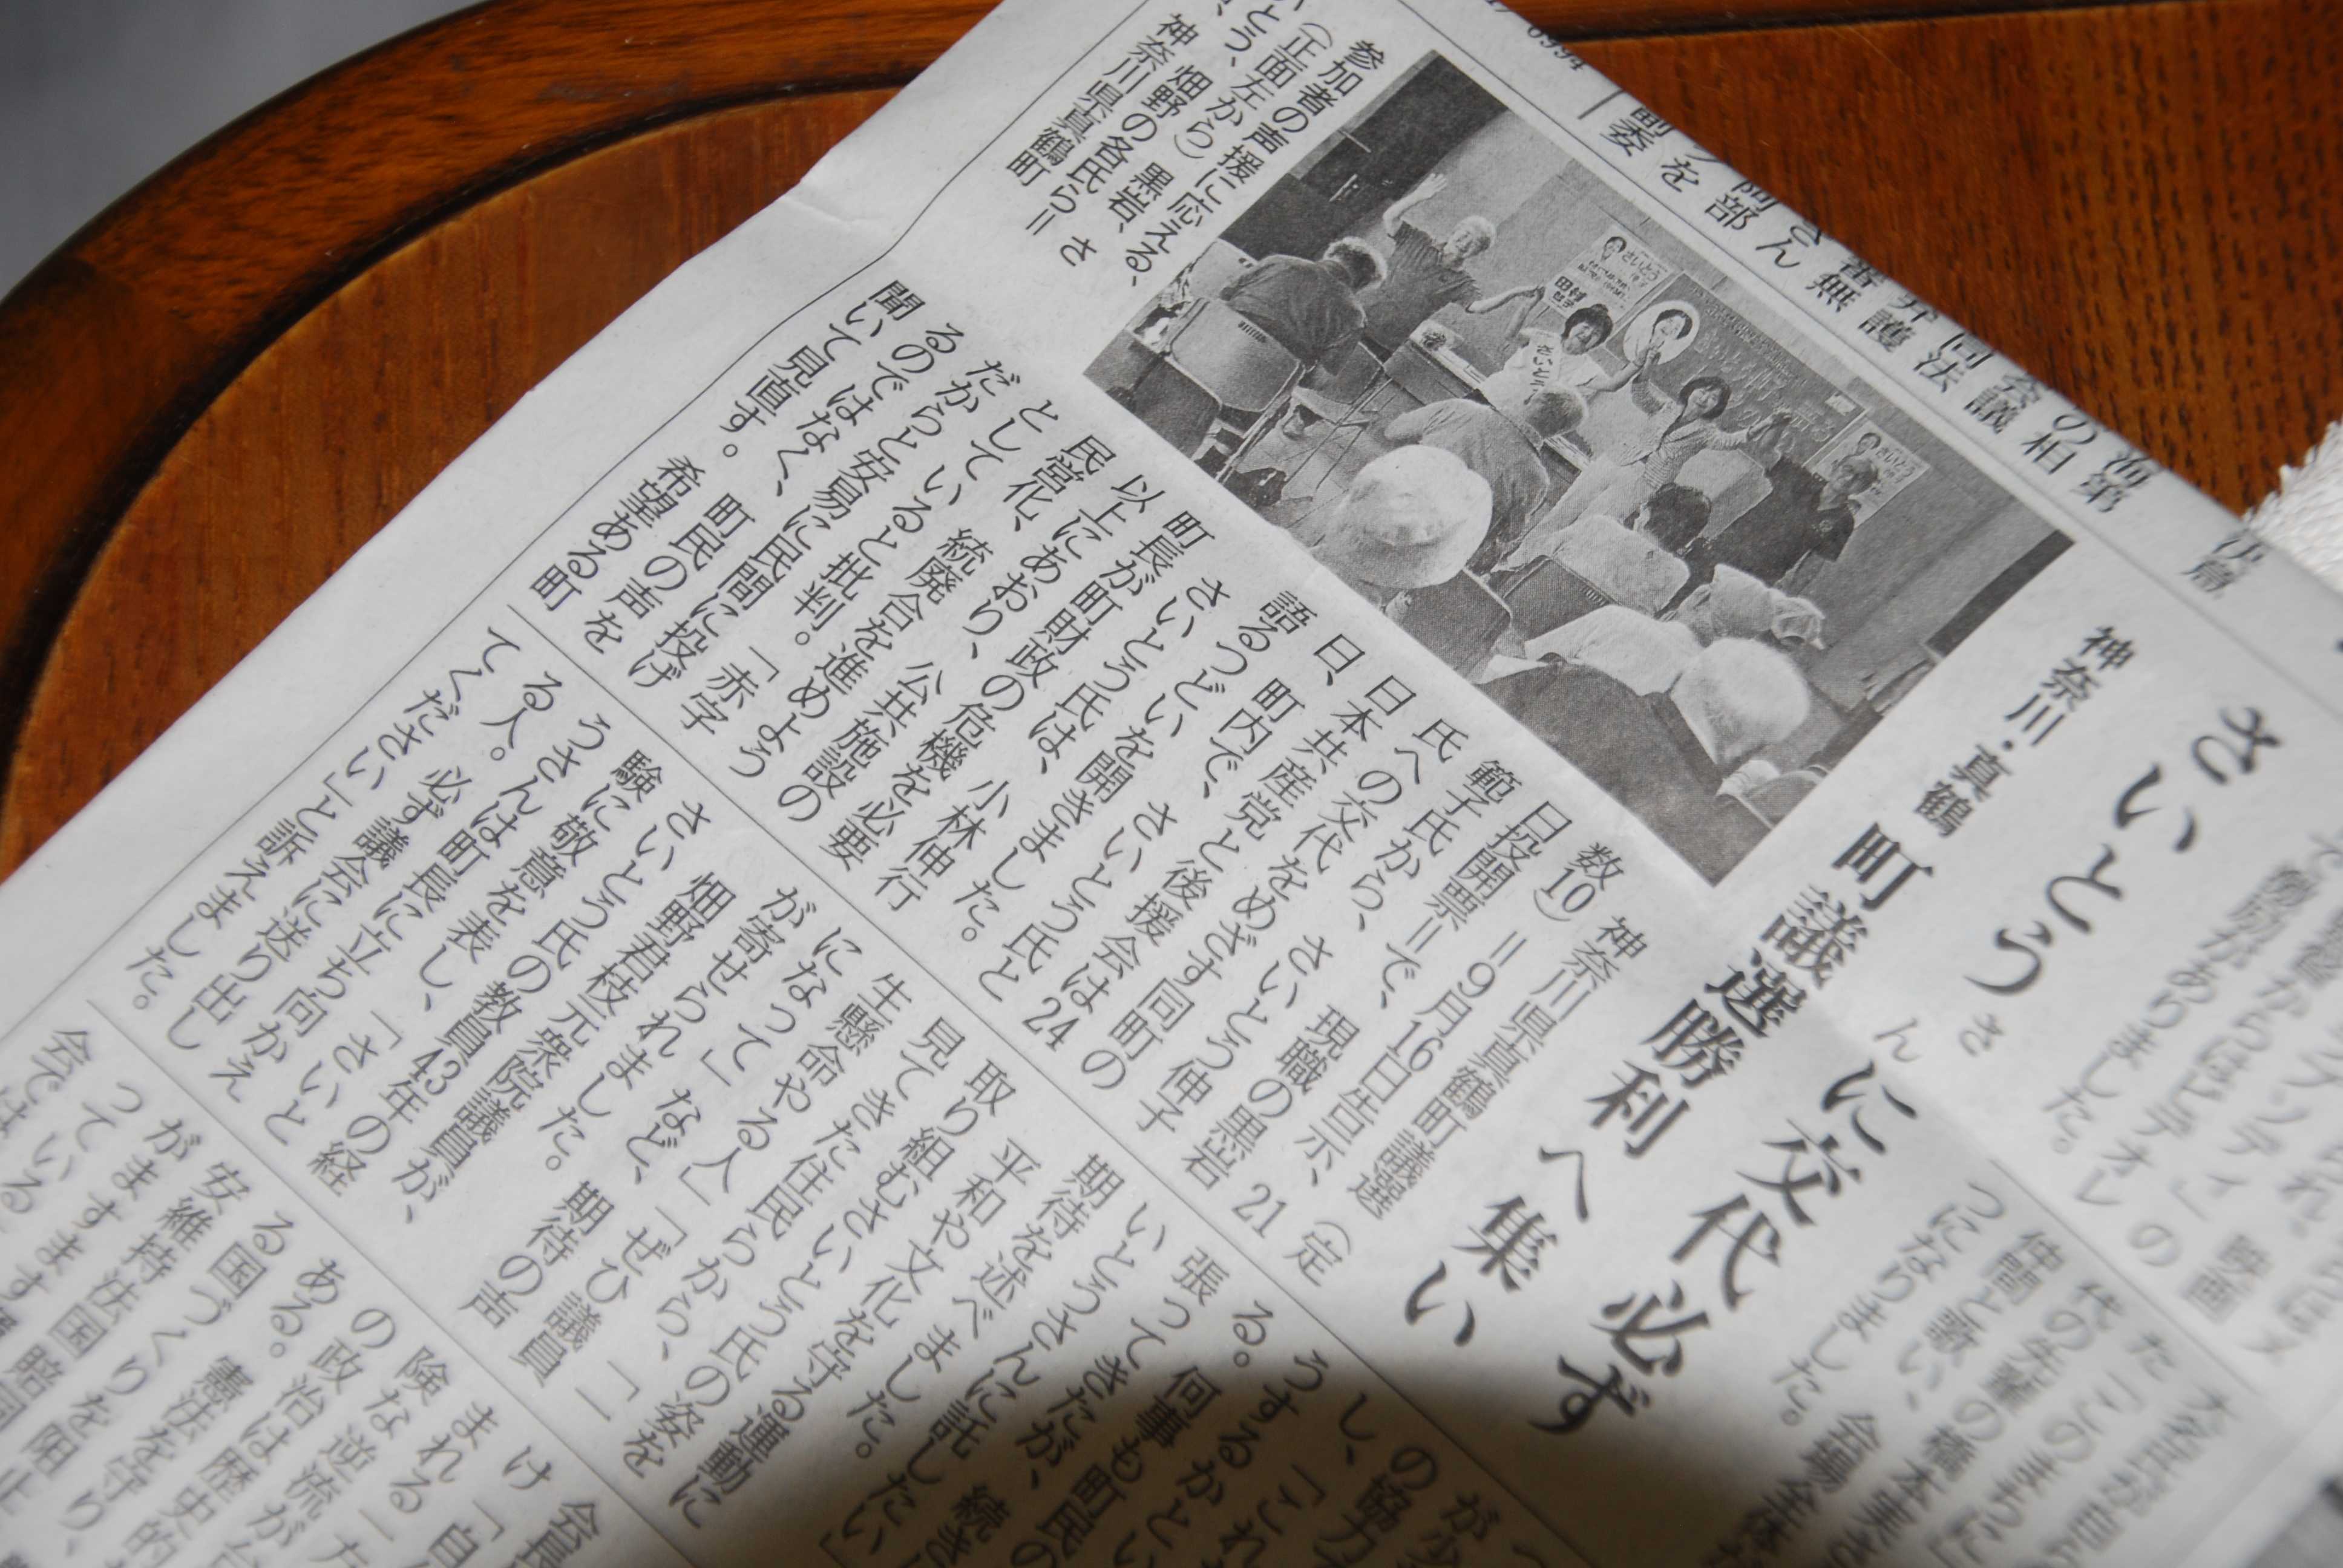 さいとうさんに交代必ず
神奈川・真鶴 町議選勝利へ集い
参加者の声援に応える、
(正面左から)黒岩、さ
いとう、畑野の各氏ら=
神奈川県真鶴町
神奈川県真鶴町議選(定
数10)=9月16日告示、21
日投開票=で、現職の黒岩
範子氏から、さいとう伸子
氏への交代をめざす同町の
日本共産党と後援会は24
日、町内で、さいとう氏と
語るつどいを開きました。
さいとう氏は、小林伸行
町長が町財政の危機を必要
以上にあおり、公共施設の
民営化、統廃合を進めよう
としていると批判。「赤字
だからと安易に民間に投げ
るのではなく、町民の声を
聞いて見直す。希望ある町
の協力
し、「これ
うするかとい
る。何事も町民の
張ってきたが、続き
いとうさんに託したい」
期待を述べました。
平和や文化を守る運動に
取り組むさいとう氏の姿を
見てきた住民らから、「一
生懸命やる人」「ぜひ議員
になって」など、期待の声
が寄せられました。
畑野君枝元衆院議員が、
さいとう氏の教員43年の経
験に敬意を表し、「さいと
うさんは町長に立ち向かえ
る人。必ず議会に送り出し
てください」と訴えました。
会員
け
まれる「自
険な逆流が
の政治は歴史的
ある。憲法を守り、
る国づくりを阻止
安維持法国賠同
がますます
っている
会では
がありました。
仲間と歌い、会場全体
つになりました。